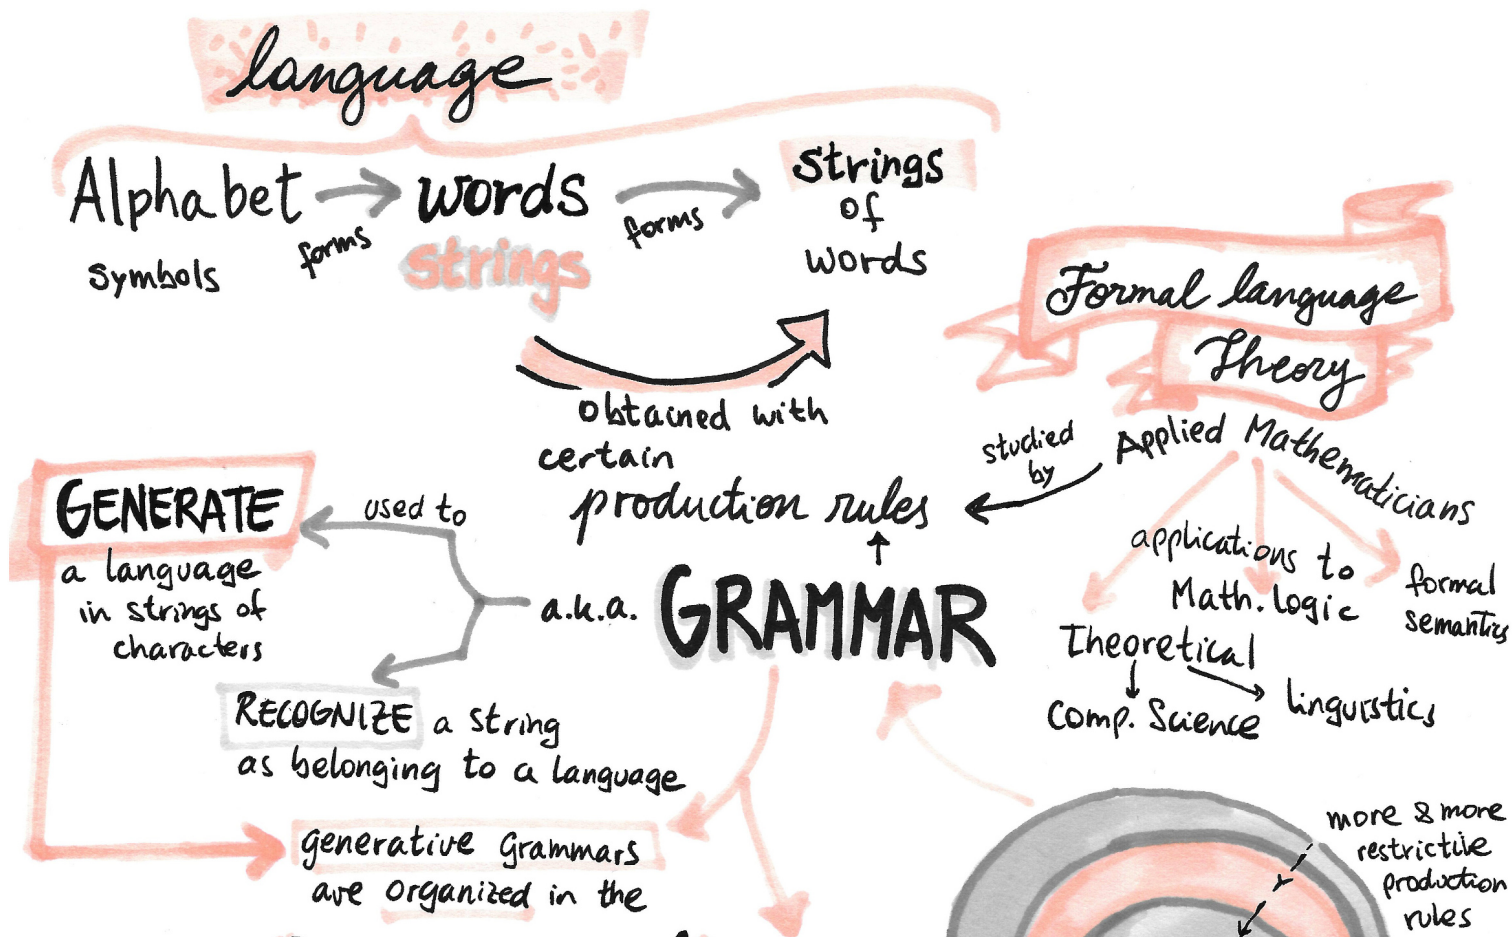 language
Alphabet
forms
words
forms
strings
of
words
symbols
strings
obtained with
certain
production rules
Formal language
Theory
studied
by
Applied Mathematicians
applications to
Math. logic
formal
semantics
Theoretical
Comp. Science
linguistics
GRAMMAR
a.k.a.
used to
GENERATE
a language
in strings of
characters
RECOGNIZE a string
as belonging to a language
generative Grammars
are organized in the
more & more
restrictive
production
rules